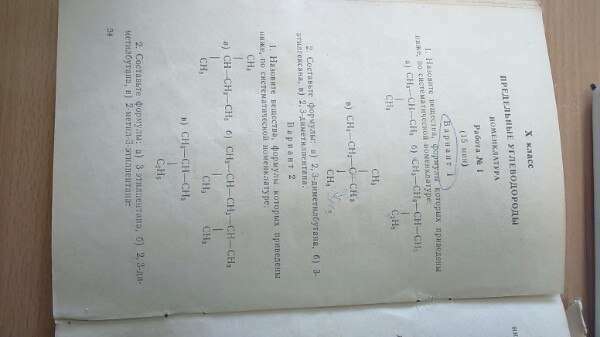 X класс
ПРЕДЕЛЬНЫЕ УГЛЕВОДОРОДЫ
НОМЕНКЛАТУРА
Работа № 1
(15 мин)
Вариант 1
1. Назовите вещества, формулы которых приведены
ниже, по систематической номенклатуре:
а) CH₃—CH—CH₃ б) CH₃—CH—CH—CH₃
CH₃ C₂H₅
CH₃
в) CH₃—CH₂—C—CH₃
CH₃
2. Составьте формулы: а) 2,3-диметилбутана, б) 3-
этилгексана, в) 2,3-диметилпентана.
Вариант 2
1. Назовите вещества, формулы которых приведены
ниже, по систематической номенклатуре:
CH₃
а) CH—CH₂—CH₃ б) CH₃—CH—CH₂—CH—CH₃
CH₃ CH₃ CH₃
в) CH₃—CH—CH₃
C₂H₅
2. Составьте формулы: а) 3-этилпентана, б) 2,3-ди-
метилбутана, в) 2-метил-3-этилпентана.
94